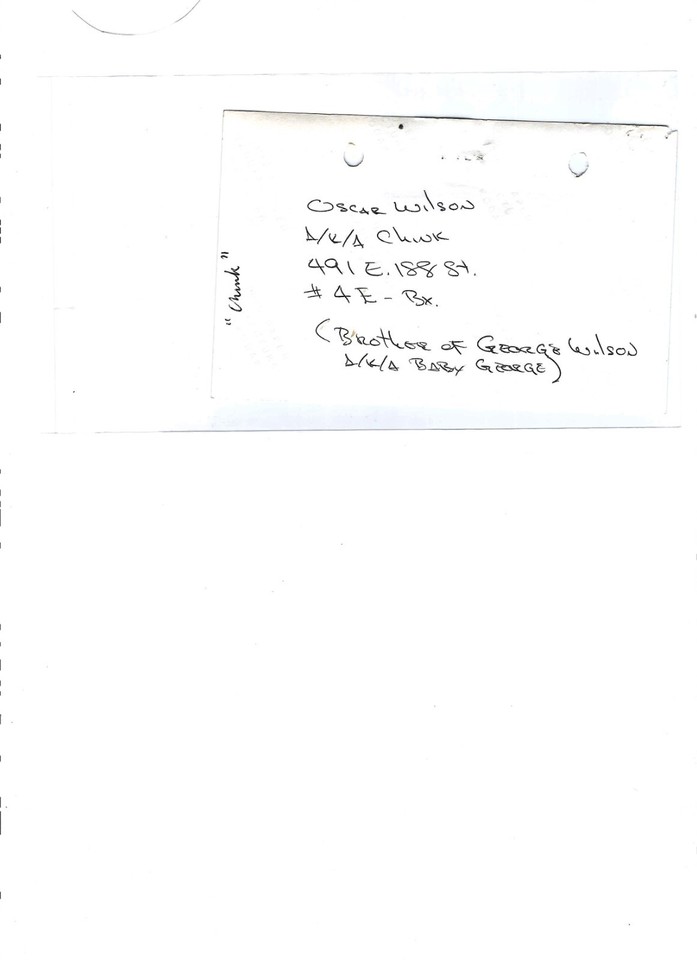 "Chink"
Oscar Wilson
A/K/A Chink
491 E. 188 St.
# 4E - Bx.
(Brother of George Wilson
A/K/A Baby George)